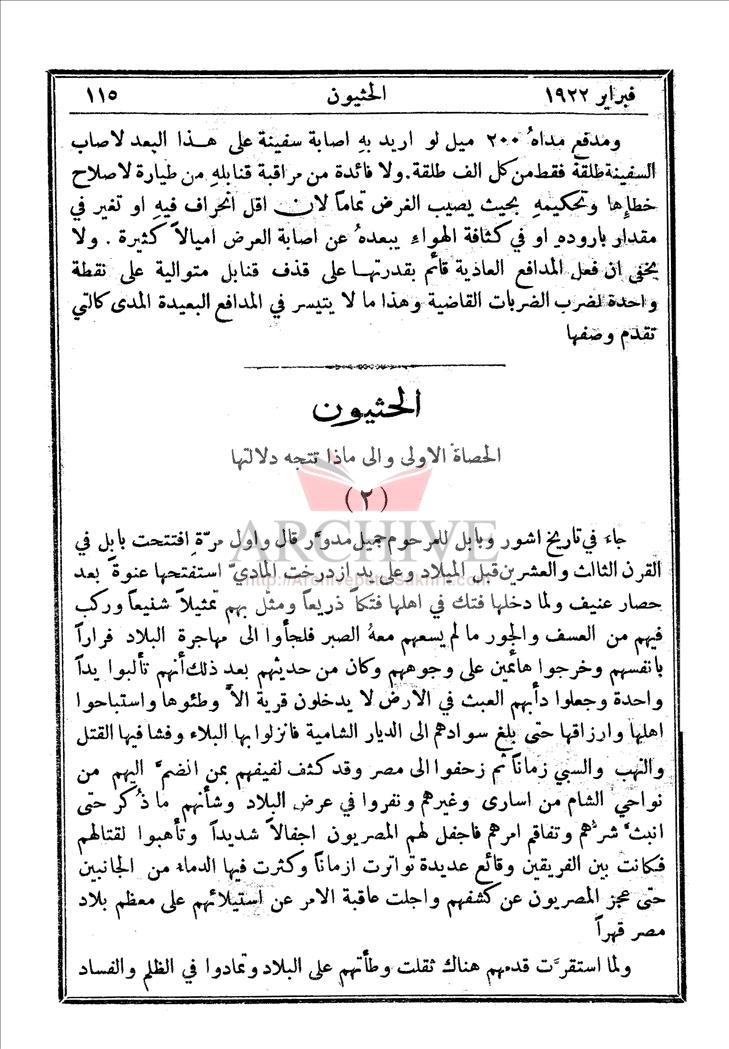 فبراير ١٩٢٢ الحثيون ١١٥
ومدفع مداهُ ٢٠٠ ميل لو اريد بهِ اصابة سفينة على هذا البعد لاصاب
السفينة طلقة فقط من كل الف طلقة . ولا فائدة من مراقبة قنابلهِ من طيارة لاصلاح
خطاٍها وتحكيمهِ بحيث يصيب الغرض تماماً لان اقل انحراف فيهِ او تغير في
مقدار بارودهِ او في كثافة الهواءِ يبعدهُ عن اصابة العرض اميالاً كثيرة . ولا
يخفى ان فعل المدافع العاذية قائم بقدرتها على قذف قنابل متوالية على نقطة
واحدة لضرب الضربات القاضية وهذا ما لا يتيسر في المدافع البعيدة المدى كالتي
تقدم وصفها
الحثيون
الحصاة الاولى والى ماذا تتجه دلالتها
(٢)
ARCHIVE
جاءَ في تاريخ اشور وبابل للمرحوم جميل مدوَّر قال واول مرّة افتتحت بابل في
القرن الثالث والعشرين قبل الميلاد وعلى يد ازدرخت الماديّ استفتحها عنوةً بعد
حصار عنيف ولما دخلها فتك في اهلها فتكاً ذريعاً ومثَّل بهم تمثيلاً شنيعاً وركب
فيهم من العسف والجور ما لم يسعهم معهُ الصبر فلجأوا الى مهاجرة البلاد فراراً
بانفسهم وخرجوا هائمين على وجوههم وكان من حديثهم بعد ذلك أنهم تألبوا يداً
واحدة وجعلوا دأبهم العبث في الارض لا يدخلون قرية الاَّ وطئوها واستباحوا
اهلها وارزاقها حتى بلغ سوادهم الى الديار الشامية فانزلوا بها البلاء وفشا فيها القتل
والنهب والسبي زماناً ثم زحفوا الى مصر وقد كثف لفيفهم بمن انضمَّ اليهم من
نواحي الشام من اسارى وغيرهم ونفروا في عرض البلاد وشأنهم ما ذُكر حتى
انبثَّ شرُّهم وتفاقم امرهم فاجفل لهم المصريون اجفالاً شديداً وتأهبوا لقتالهم
فكانت بين الفريقين وقائع عديدة تواترت ازماناً وكثرت فيها الدماء من الجانبين
حتى عجز المصريون عن كشفهم واجلت عاقبة الامر عن استيلائهم على معظم بلاد
مصر قهراً
ولما استقرَّت قدمهم هناك ثقلت وطأتهم على البلاد وتمادوا في الظلم والفساد